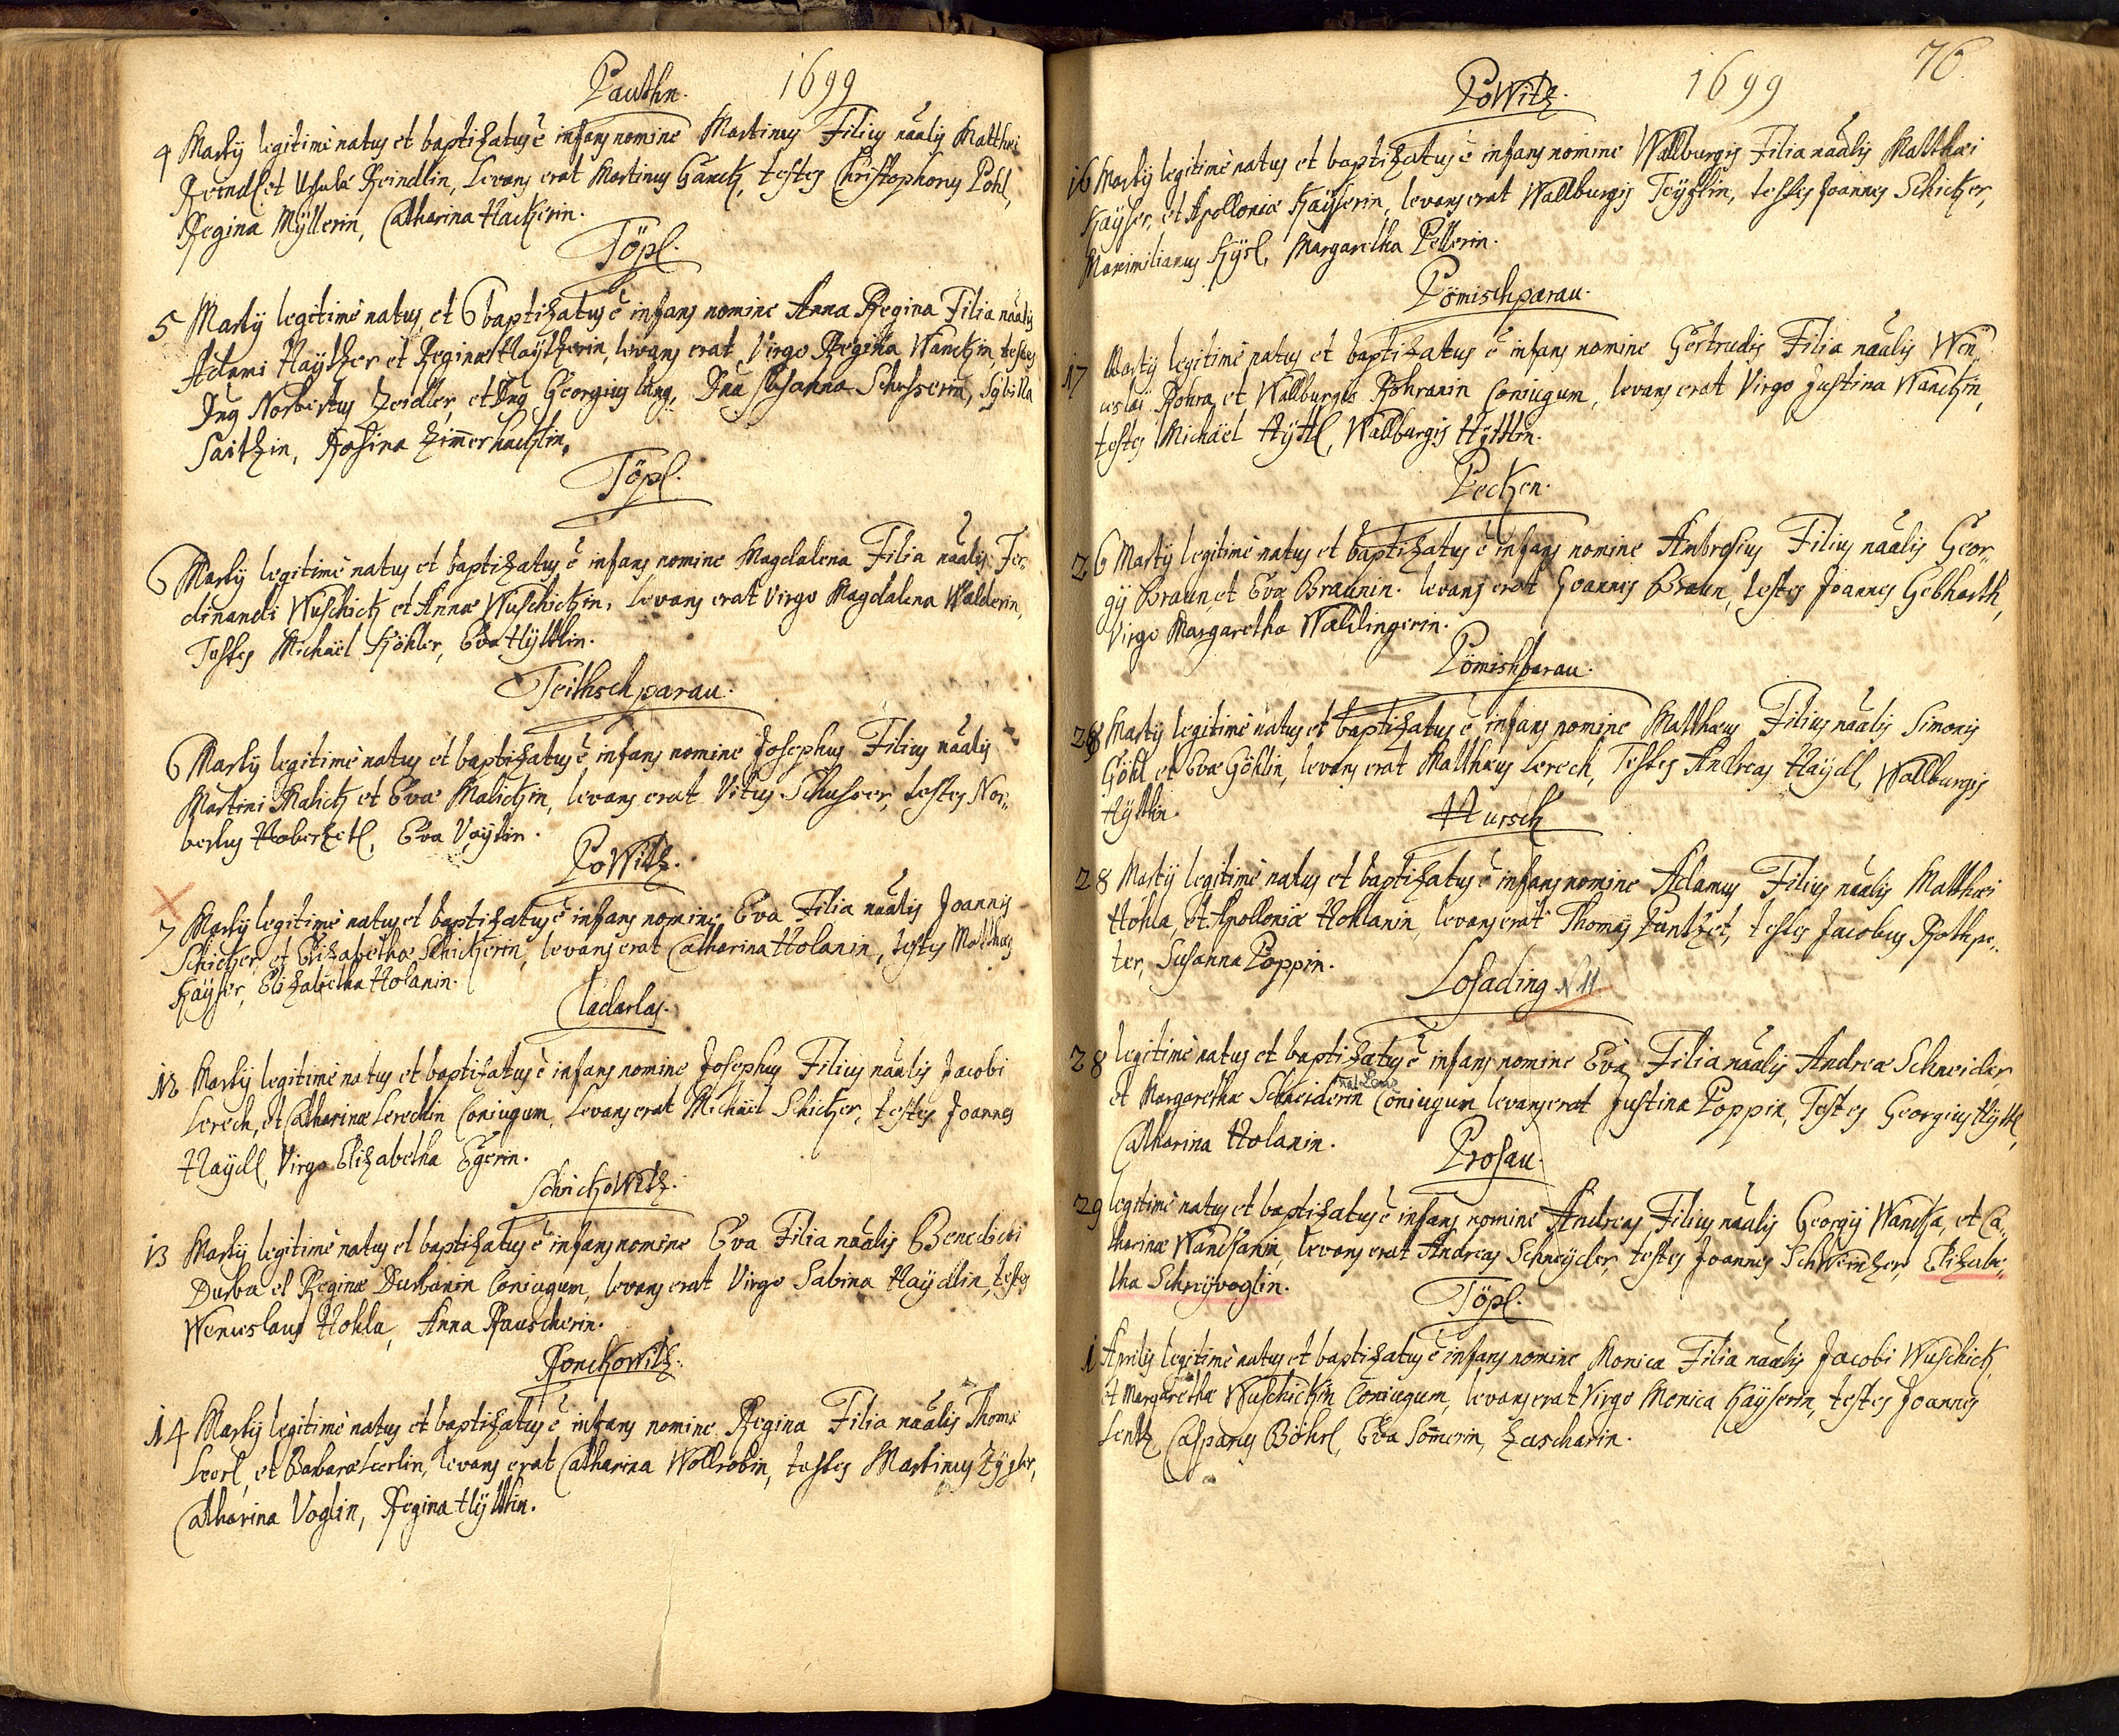 Pauthn. 1699
4 Martÿ legitimè natus et baptizatus ē infans nomine Martinus Filius nãalis Matthæi
Reindl et Ursulæ Reindlin, Levans erat Martinus Hanck, testes Christophorus Pohl,
Regina Mÿllerin, Catharina Hackerin.
Töpl.
5 Martÿ legitimè natus, et baptizatus ē infans nomine Anna Regina Filia nãalis
Adami Haÿtzer et Reginæ Haÿtzerin, levans erat Virgo Regina Wanckin, testes
Dng Norbertus Zeidler, et Dng Georgius lang, Dna Susanna Schusserin, Sÿbilla
Saitzin, Rosina Zim̄erhacklin.
Töpl.
6 Martÿ legitimè natus et baptizatus ē infans nomine Magdalena Filia nãalis Fer„
dinandi Wuschick et Annæ Wuschickin, Levans erat Virgo Magdalena Walderin,
Testes Michaël Köhler, Eva Hÿttlin.
Teithschparau.
6 Martÿ legitimè natus et baptizatus ē infans nomine Josephus Filius nãalis
Martini Malick et Evæ Malickin, levans erat Vitus Schusser, testes Nor„
bertus Haberzetl, Eva Vaÿtin.
PoWitz.
7 Martÿ legitimè natus et baptizatus ē infans nomine Eva Filia nãalis Joannis
Schicker, et Elizabethæ Schickerin, levans erat Catharina Holanin, testes Matthæus
Kaÿser, Elizabetha Holanin.
Cladarlas.
12 Martÿ legitimè natus et baptizatus ē infans nomine Josephus Filius nãalis Jacobi
Lerech, et Catharinæ Lerechin Coniugum, Levans erat Michaël Schicker, testes Joannes
Haÿdl, Virgo Elizabetha Egerin.
SchickoWitz.
13 Martÿ legitimè natus et baptizatus ē infans nomine Eva Filia nãalis Benedicti
Durba et Reginæ Durbanin Coniugum, levans erat Virgo Sabina Haÿdlin, testes
Wenceslaus Hohla, Anna Rauscherin.
RonckoWitz.
14 Martÿ legitimè natus et baptizatus ē infans nomine Regina Filia nãalis Thomæ
Leerl, et Barbaræ Leerlin, levans erat Catharina Wollrobin, testes Martinus Zÿgler,
Catharina Voglin, Regina Hÿttlin.
PoWitz. 1699 76.
16 Martÿ legitimè natus et baptizatus ē infans nomine Wallburgis Filia nãalis Matthæi
Kaÿser, et Apolloniæ Kaÿserin, levans erat Wallburgis Teÿflin, testes Joannes Schicker,
Maximilianus Kÿsl, Margaretha Pellerin.
Pömischparau.
17 Martÿ legitimè natus et baptizatus ē infans nomine Gertrudis Filia nãalis Wen„
ceslai Rohra, et Wallburgis Rohranin Coniugum, levans erat Virgo Justina Wanckin,
testes Michaël Hÿttl, Wallburgis Hÿttlin.
Pecken.
26 Martÿ legitimè natus et baptizatus ē infans nomine Ambrosius Filius nãalis Geor„
gÿ Braun, et Evæ Braunin. levans erat Joannes Braun, testes Joannes Gebharth,
Virgo Margaretha Waldingerin.
Pömishparau.
28 Martÿ legitimè natus et baptizatus ē infans nomine Matthæus Filius nãalis Simonis
Göhl et Evæ Göhlin, levans erat Matthæus Lerech, Testes Andreas Haÿdl, Wallburgis
Hÿttlin.
Hursch
28 Martÿ legitimè natus et baptizatus ē infans nomine Adamus Filius nãalis Matthæi
Hohla, et Apolloniæ Hohlanin, levans erat Thomas Puntzet, testes Jacobus Rothpe„
ter, Susanna Poppin.
Losading N 11
28 legitimè natus et baptizatus ē infans nomine Eva Filia nãalis Andreæ Schneider,
et Margarethæ Schneiderin Coniugum levans erat Justina Poppin, Testes Georgius Hÿttl,
Catharina Holanin.
Prosau.
29 legitimè natus et baptizatus ē infans nomine Andreas Filius nãalis Georgÿ Wancka, et Ca„
tharinæ Wanckanin, levans erat Andreas Schneÿder, testes Joannes Schweintzer, Elizabe„
tha Schreÿvoglin.
Töpl.
1 Aprilis legitimè natus et baptizatus ē infans nomine Monica Filia nãalis Jacobi Wuschick,
et Margarethæ Wuschickin Coniugum, levans erat Virgo Monica Kaÿserin, testes Joannes
Lentz, Casparus Böhrl, Eva Som̄erin, Zascharin.